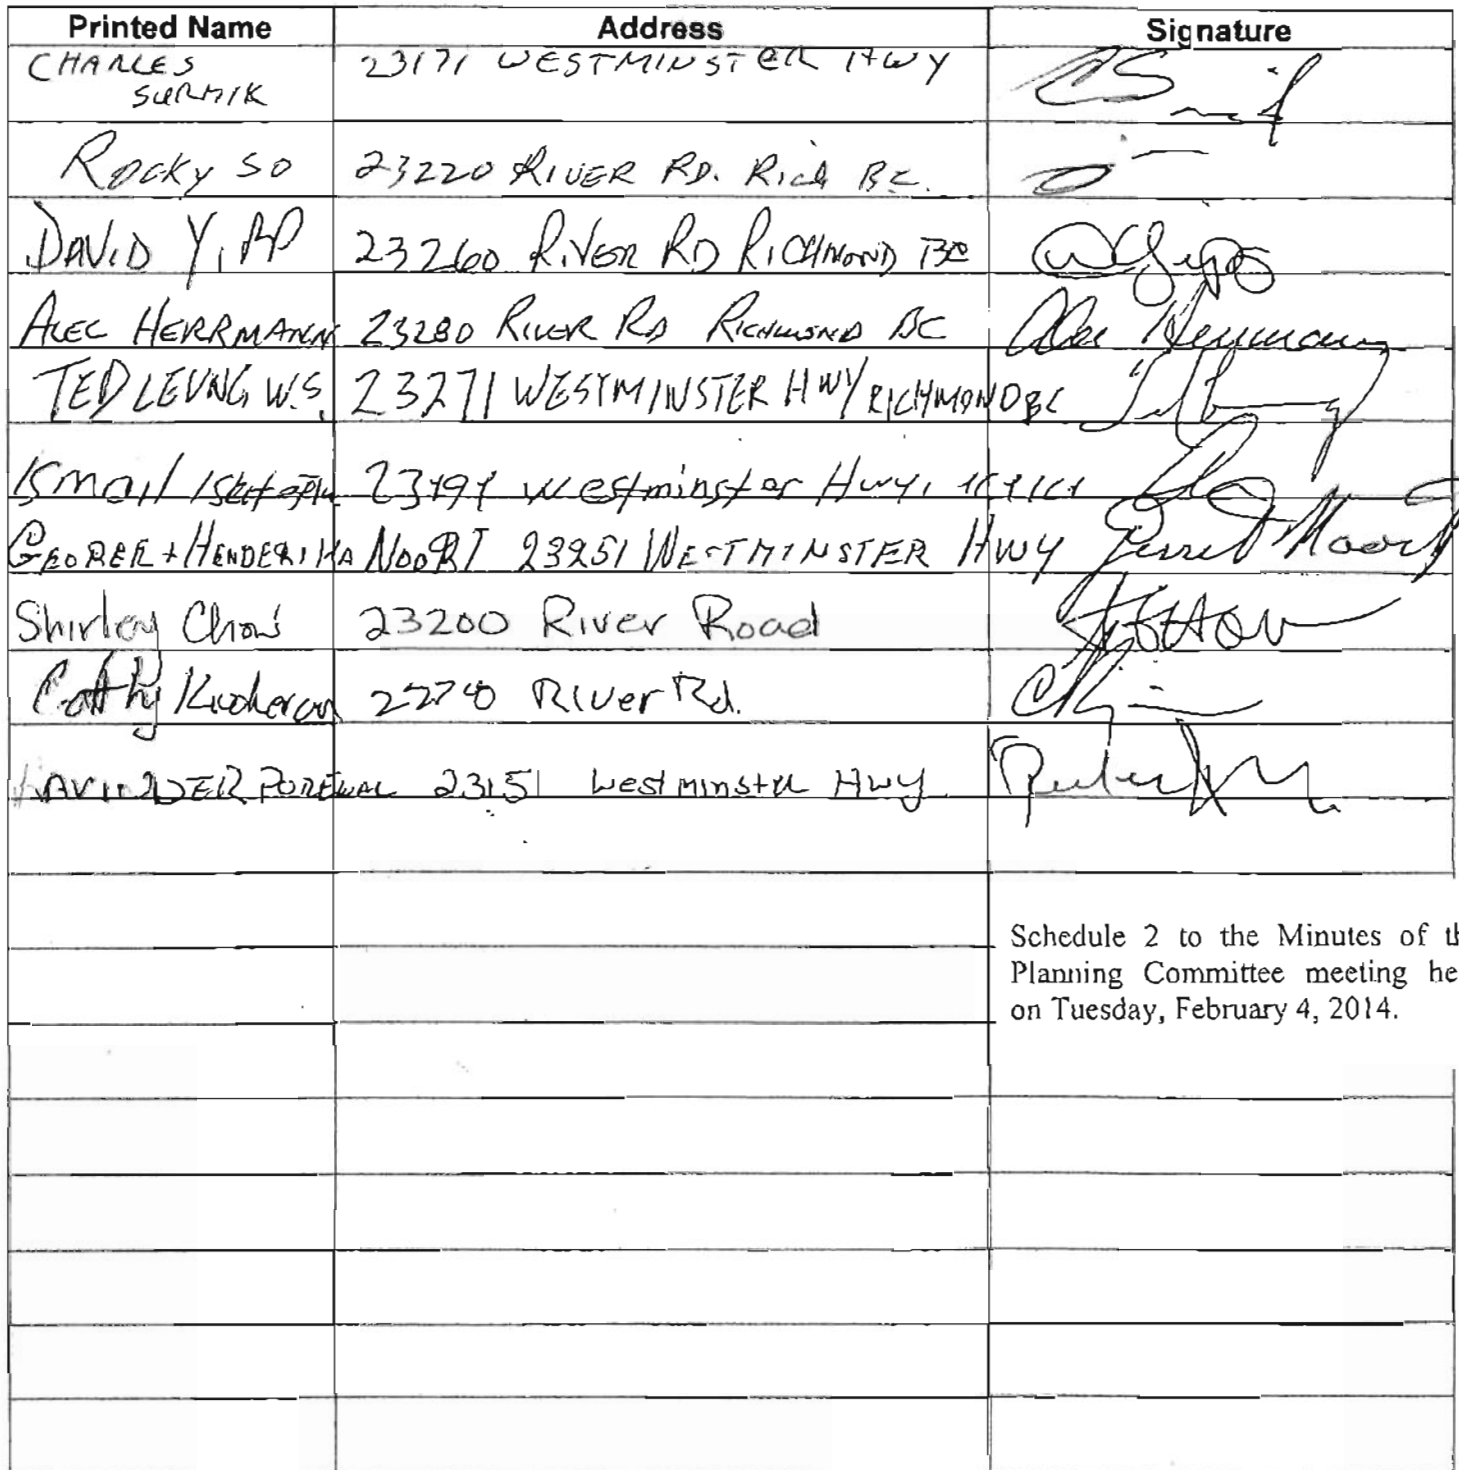 Printed Name Address Signature
CHARLES 23171 WESTMINSTER HWY
SURMIK
ROCKY SO 23220 RIVER RD. Rich BC.
DAVID YIPP 23260 RIVER RD RICHMOND BC
ALEC HERRMANN 23280 RIVER RD RICHMOND BC Alec Herrmann
TED LEUNG W.S. 23271 WESTMINSTER HWY RICHMOND BC
Ismail Westminster Hwy,
GEORGE + HENDERIKA NOORT 23251 WESTMINSTER HWY Gerrit Noort
Shirley Chow 23200 River Road
Cathy River Rd.
PUREWAL 23151 Westminster Hwy
Schedule 2 to the Minutes of th
Planning Committee meeting he
on Tuesday, February 4, 2014.